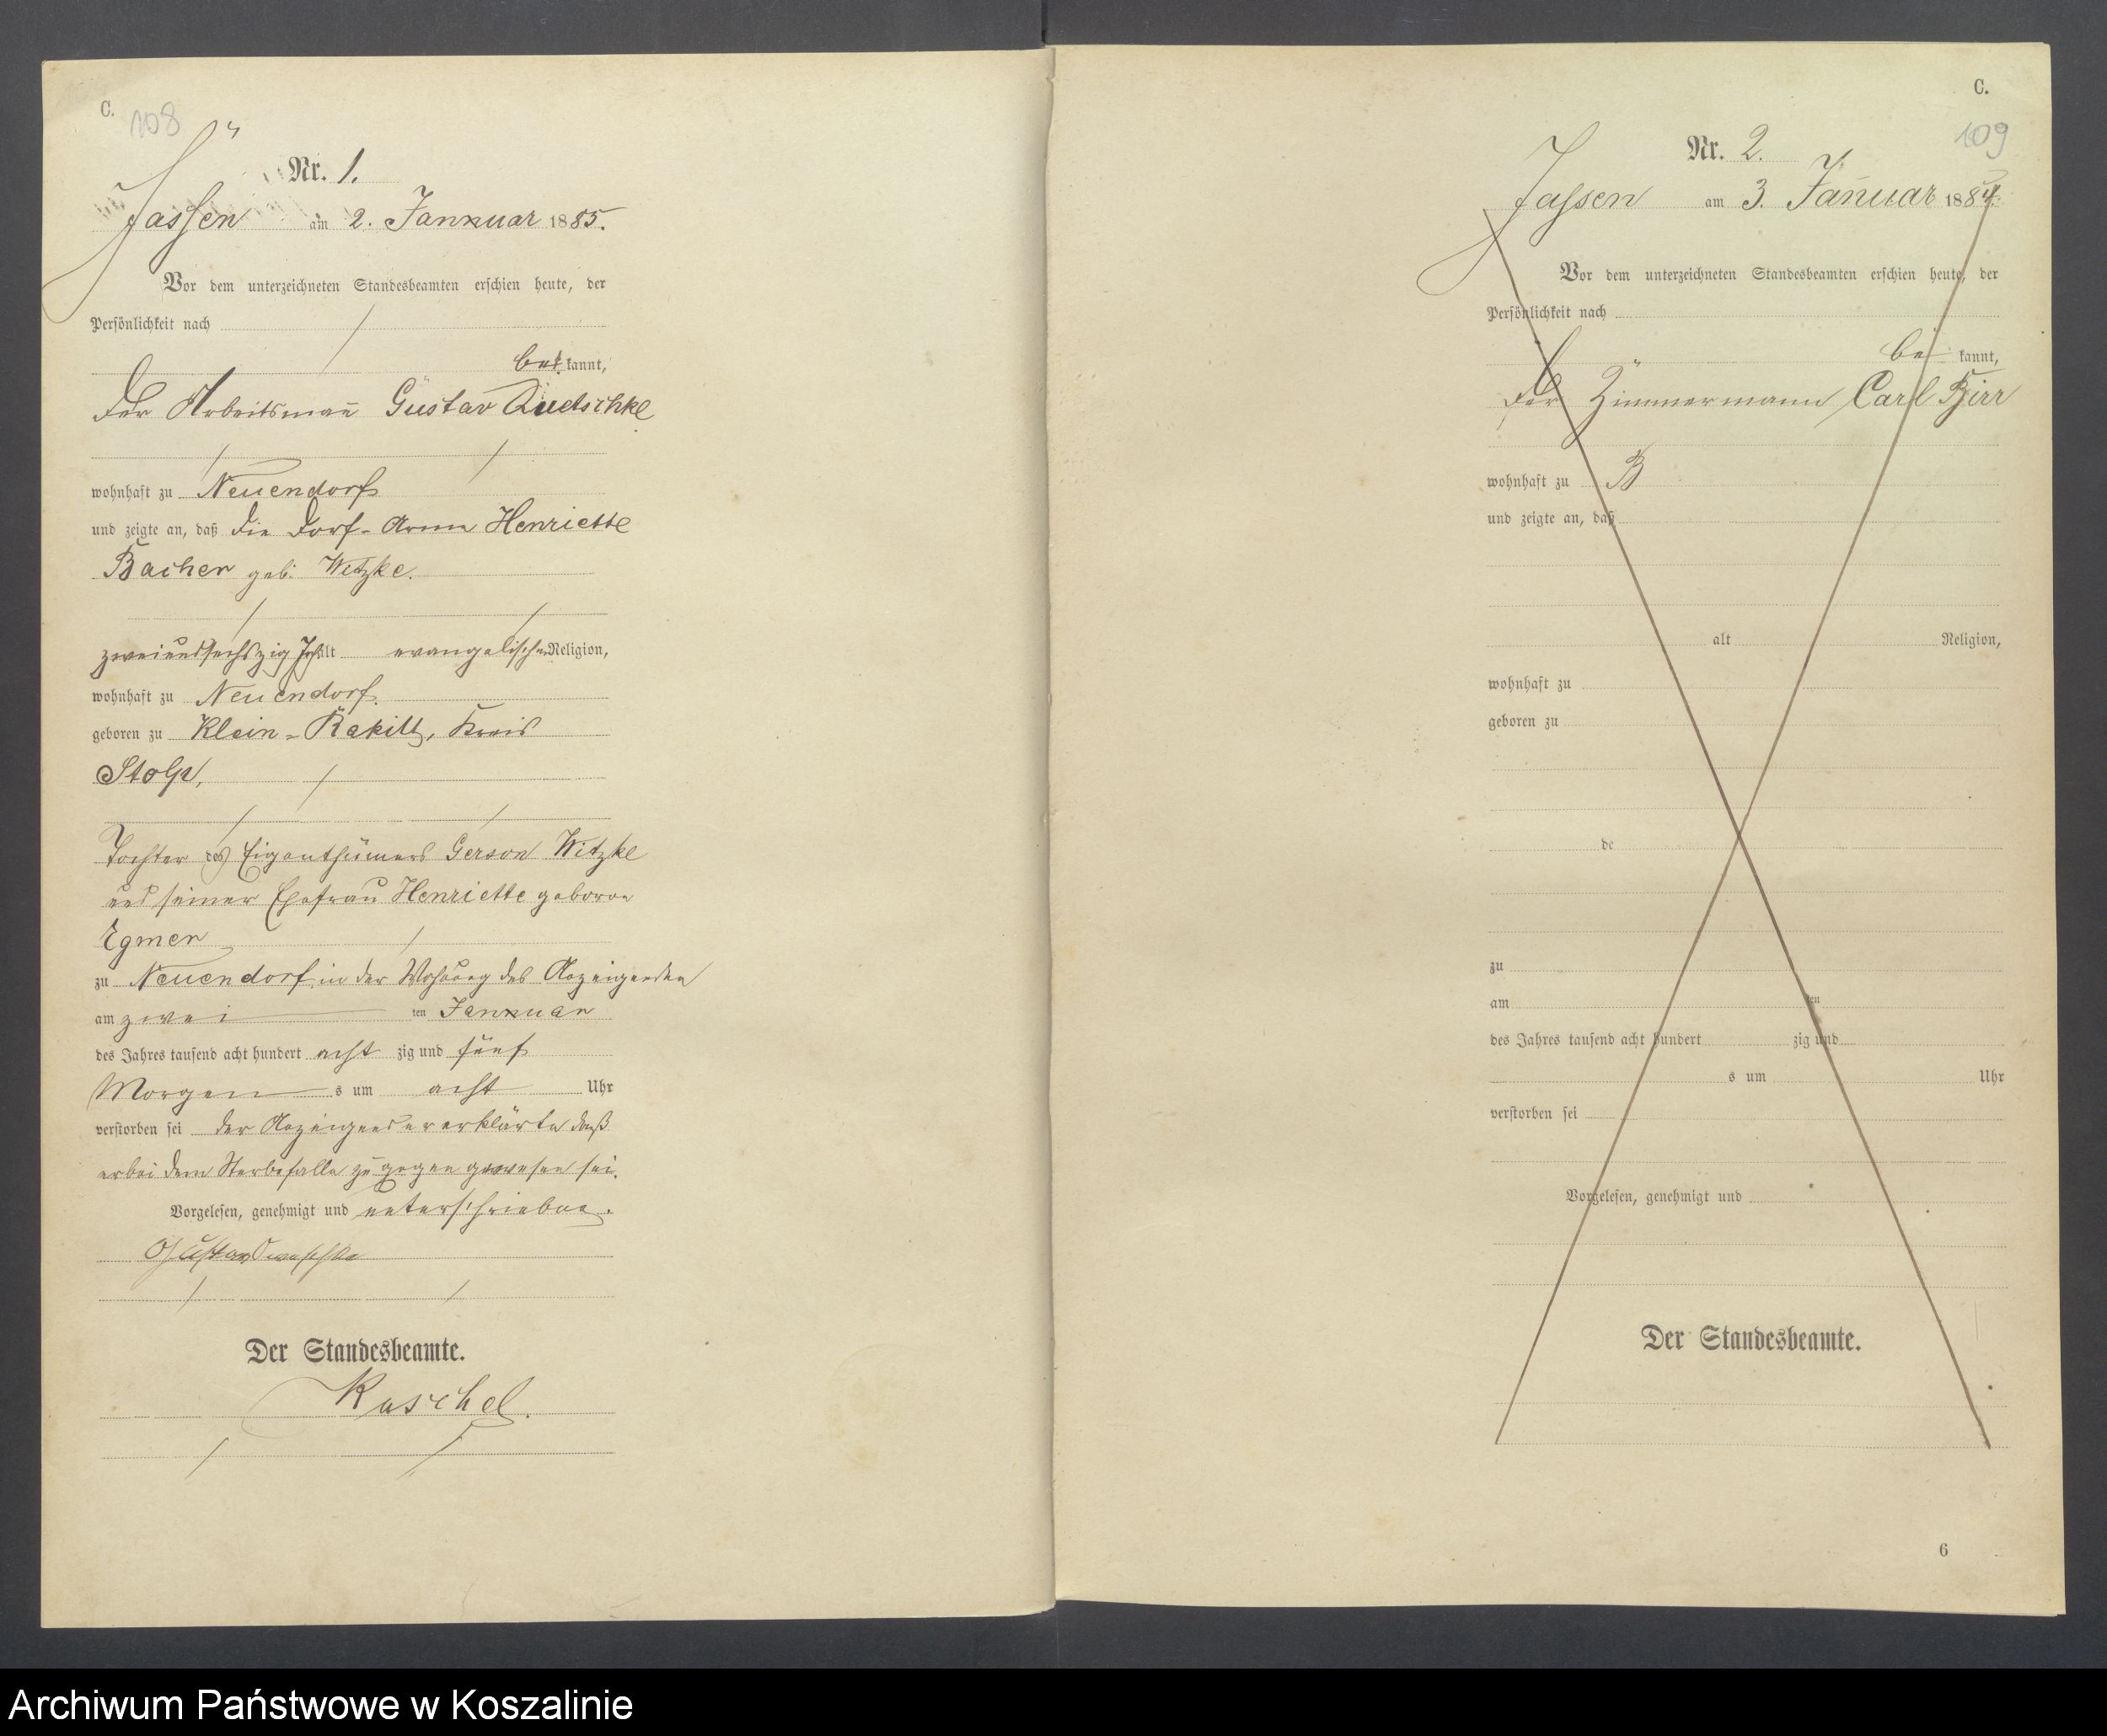 C.
108
Nr. 1.
Jassen am 2. Januar 1885.
Vor dem unterzeichneten Standesbeamten erschien heute, der
Persönlichkeit nach
be kannt,
der Arbeitsmañ Gustav
wohnhaft zu Neuendorf
und zeigte an, daß die Dorf-Arme Henriette
Bacher geb. Witzke.
zweiundsechszig Jahr alt evangelischer Religion,
wohnhaft zu Neuendorf.
geboren zu Klein-Rakitt, Kreis
Stolp,
Tochter des Eigenthümers Gerson Witzke
und seiner Ehefrau Henriette geborne
Egmer
zu Neuendorf in der Wohnung des Anzeigenden
am zwei ten Januar
des Jahres tausend acht hundert acht zig und fünf
Morgen s um acht Uhr
verstorben sei der Anzeigende erklärte daß
er bei dem Sterbefalle zugegen gewesen sei.
Vorgelesen, genehmigt und unterschrieben.
Gustav
Der Standesbeamte.
Kuschel.
C.
109
Nr. 2.
Jassen am 3. Januar 188
Vor dem unterzeichneten Standesbeamten erschien heute, der
Persönlichkeit nach
be kannt,
der Zimmermann Carl Birr
wohnhaft zu B
und zeigte an, daß
alt Religion,
wohnhaft zu
geboren zu
de
zu
am ten
des Jahres tausend acht hundert zig und
s um Uhr
verstorben sei
Vorgelesen, genehmigt und
Der Standesbeamte.
6
Archiwum Państwowe w Koszalinie